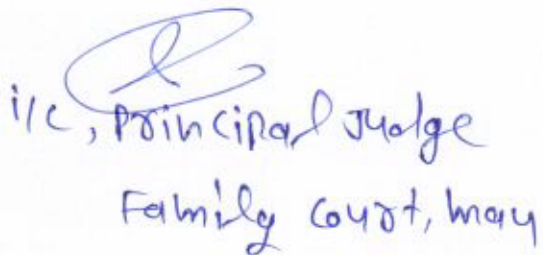 i/c, Principal Judge
Family Court, Mau